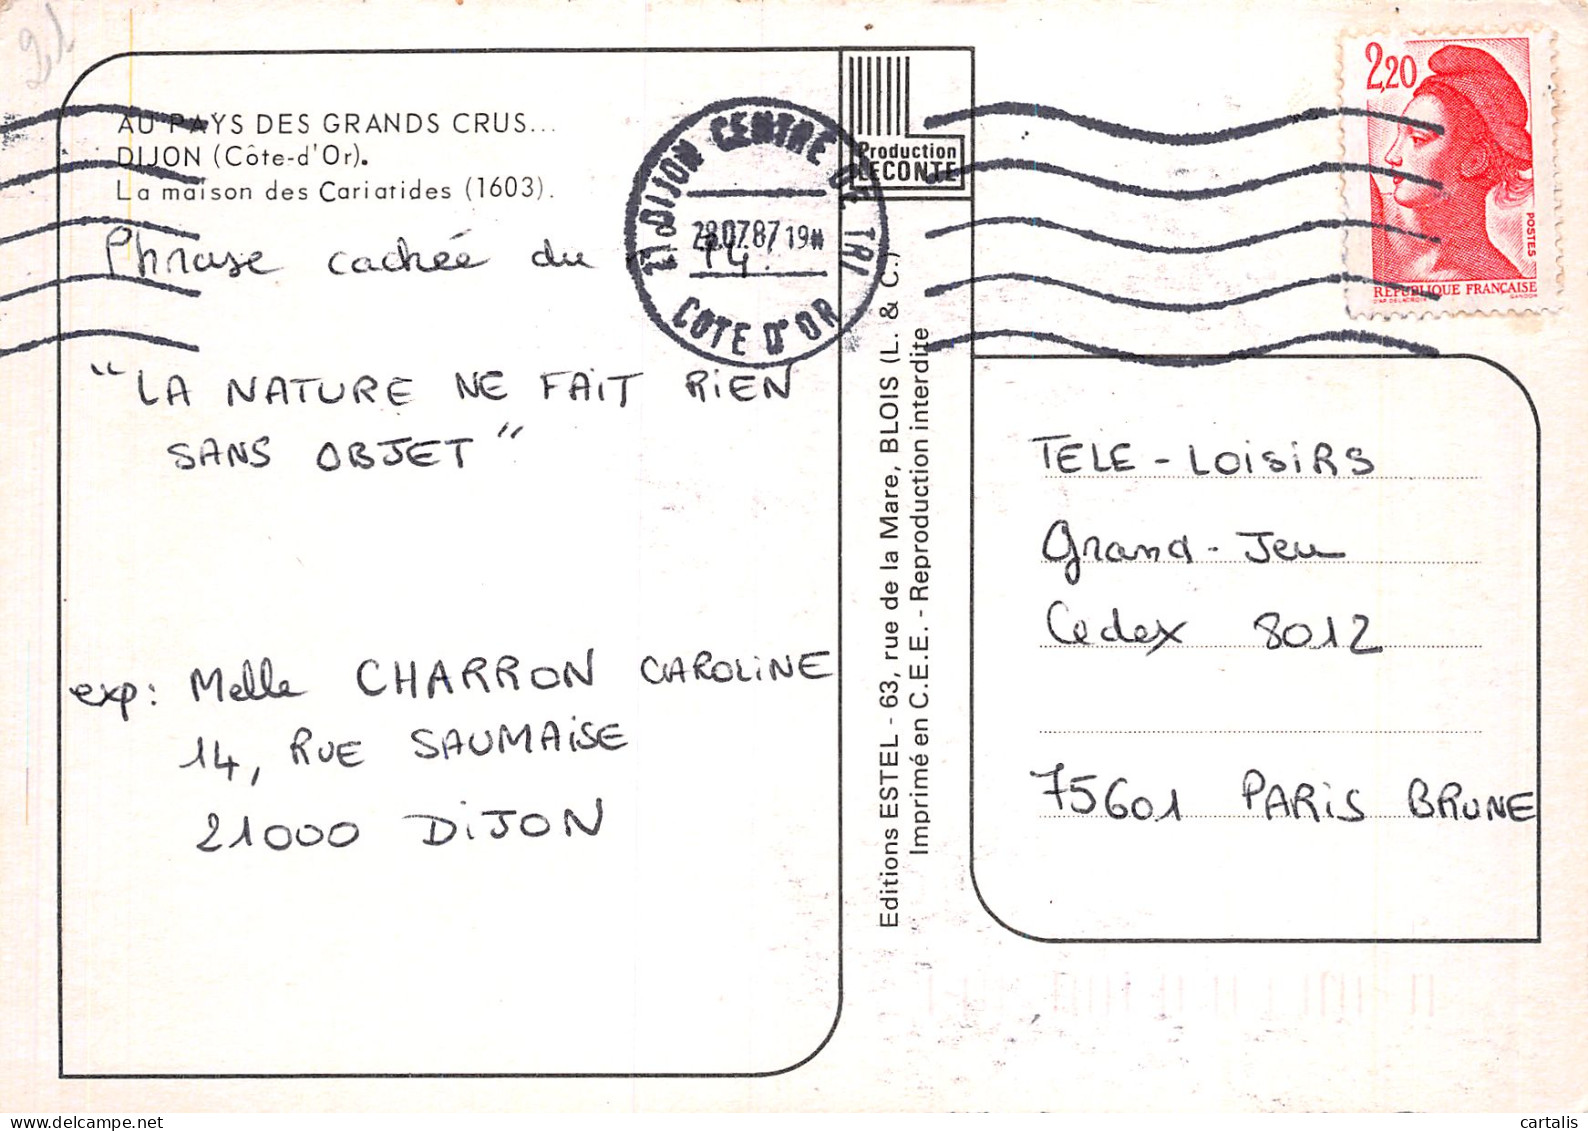 21
AU PAYS DES GRANDS CRUS...
DIJON (Côte-d'Or).
La maison des Cariatides (1603).
Phrase cachée du 14.
"LA NATURE NE FAIT RIEN
SANS OBJET"
exp: Melle CHARRON CAROLINE
14, RUE SAUMAISE
21000 DIJON
21 DIJON CENTRE DE TRI
28.07.87 19H
COTE D'OR
Production
LECONTE
Editions ESTEL - 63, rue de la Mare, BLOIS (L. & C.)
Imprimé en C.E.E. - Reproduction interdite
2,20
POSTES
RÉPUBLIQUE FRANÇAISE
D'AP. DELACROIX GANDON
TELE-LOISIRS
Grand-Jeu
Cedex 8012
75601 PARIS BRUNE
cartalis